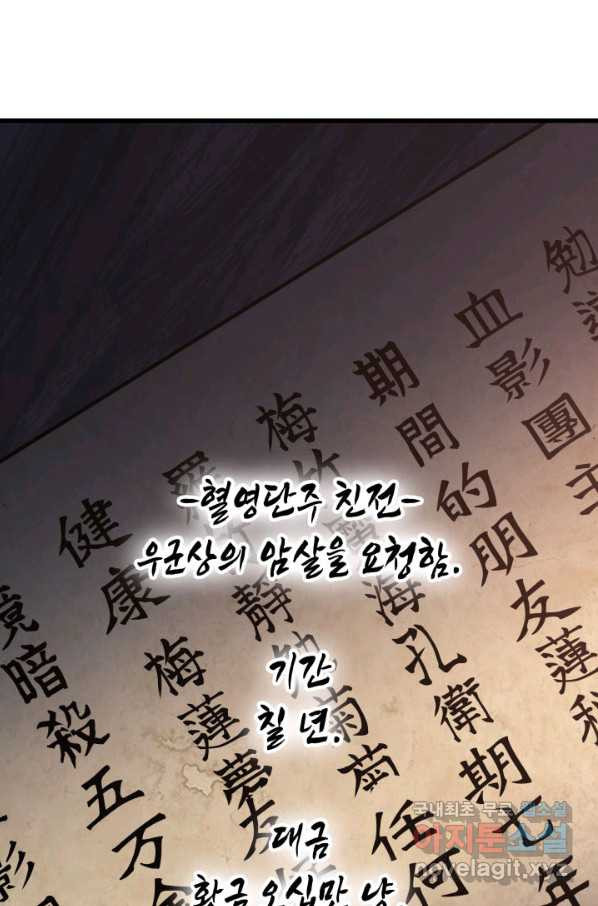 -혈영단주 친전-
우군상의 암살을 요청함.
기간
칠 년.
대금
황금 오십만 냥.
勉
血影團主
期間的朋友蓮
海孔衛期七年
梅竹
靜勉菊菊任何
羅
梅蓮夢
健康
暗殺五万
국내최초 무료 웹소설
아지툰소설
www.novelagit.xyz